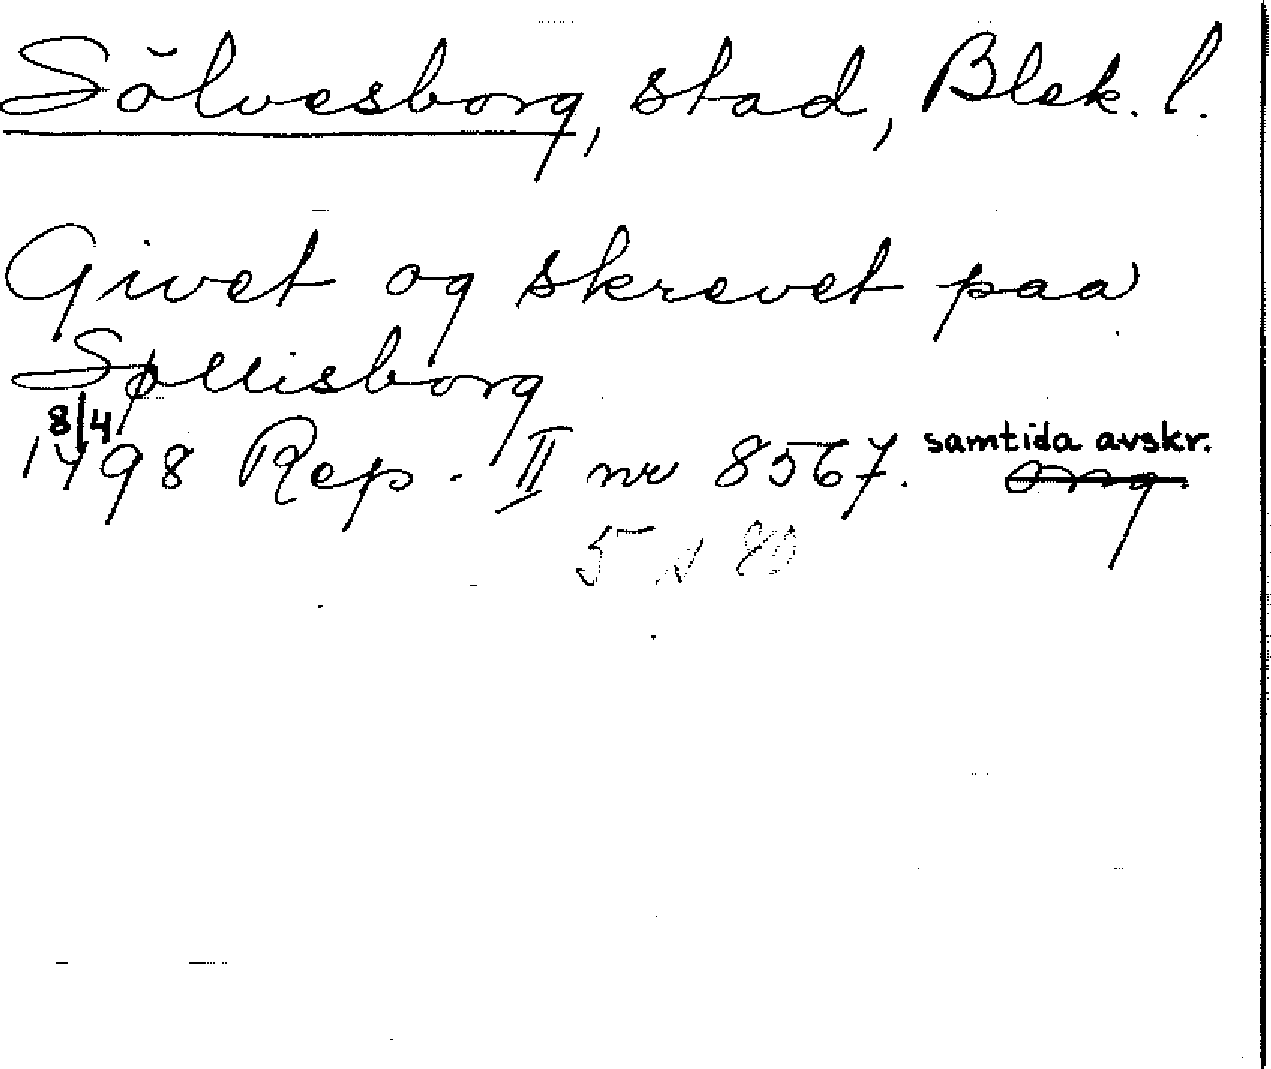 Sölvesborg, stad, Blek. l.
Givet og skrevet paa
Søllisborg
8/4
1498 Rep. II nr 8567. samtida avskr.
org